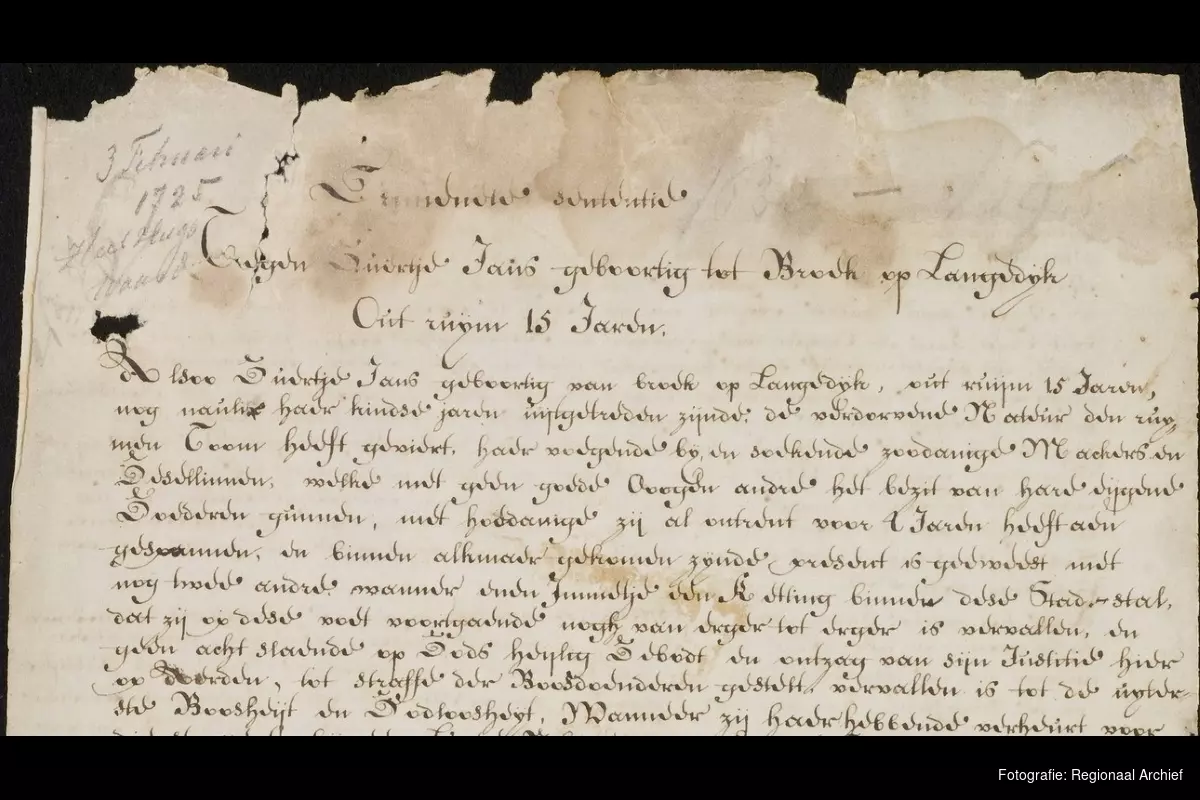 3 Februari
1725
Crimenele sententie
Teegen Guertje Jans geboortig tot Broek op Langedyk
Out ruym 15 Jaren.
Alsoo Guertje Jans geboortig van broek op Langedyk, out ruijm 15 Jaren,
nog haer kindse jaren uijtgetreden zijnde, de verdorvene Nateur den ruy„
men Toom heeft geviert, haer voegende by, en soekende zoodanige Mackers en
Gesellinnen, welke met geen goede Ooogen andre het bezit van hare eijgene
Goederen gunnen, met hoedanige zij al ontrent voor Jaren heeft aen
gespannen, en binnen alkmaer gekomen zynde present is geweest met
nog twee andre wanneer enen Jmmetje een Ketting binnen dese Stad stal,
dat zij op dese voet voortgaende nogh van erger tot erger is vervallen, en
geen acht slaende op Gods heylig Gebodt en ontzag van sijn Justitie hier
op Aerden, tot straffe der Boosdoenderen gestelt, vervallen is tot de uyter„
ste Boosheijt en Godloosheyt, Wanneer zij haer hebbende verheurt voor
Fotografie: Regionaal Archief